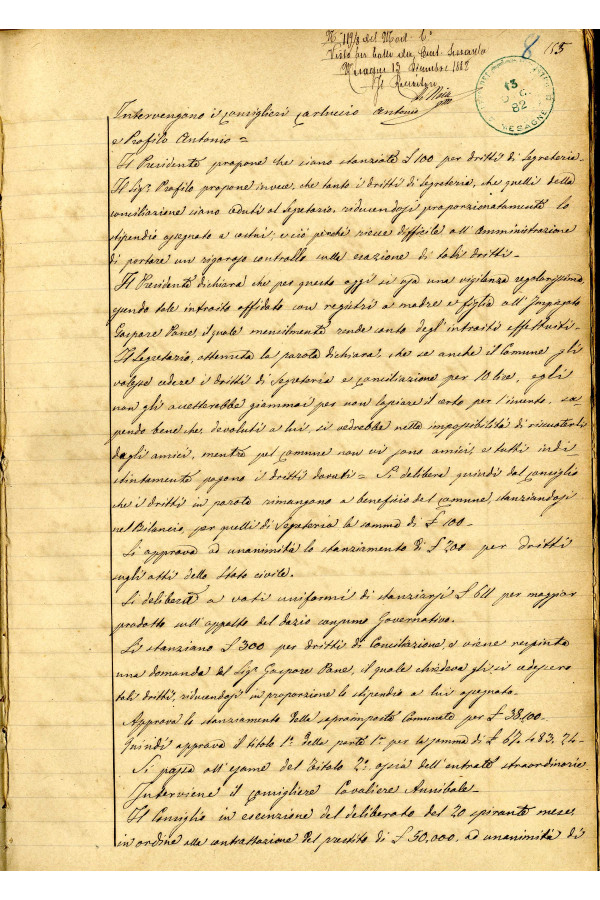 N. 119/8 del Mod. C°
Visto per bollo
Mesagne 13 Dicembre 1882
Il Ricevitore
8 155
13
82
MESAGNE
Intervengono i Consiglieri Carluccio Antonio
e Profilo Antonio =
Il Presidente propone che siano stanziate £ 100 per dritti di Segreteria.
Il Sig.r Profilo propone invece, che tanto i dritti di Segreteria, che quelli della
conciliazione siano ceduti al Segretario, riducendosi proporzionatamente lo
stipendio assegnato a costui; e ciò perchè riesce difficile all'Amministrazione
di portare un rigoroso controllo sulla esazione di tali dritti.
Il Presidente dichiara che per questo oggi si usa una vigilanza regolarissima,
essendo tale introito affidato con registri a madre e figlia all'Impiegato
Gaspare Pane, il quale mensilmente rende conto degl'introiti effettuiti.
Il Segretario, ottenuta la parola dichiara, che se anche il Comune gli
volesse cedere i dritti di Segreteria e conciliazione per 10 lire, egli
non gli accetterebbe giammai per non lasciare il certo per l'incerto, sa-
pendo bene che, devoluti a lui, si vedrebbe nella impossibilità di riscuoterli
dagli amici, mentre pel comune non vi sono amici, e tutti indi-
stintamente pagono i dritti dovuti = Si delibera quindi dal Consiglio
che i dritti in parola rimangono a beneficio del Comune, stanziandosi
nel Bilancio, per quelli di Segreteria la somma di £ 100.
Si approva ad unanimità lo stanziamento di £ 200 per dritti
sugli atti dello Stato civile.
Si delibera a voti uniformi di stanziarsi £ 611 per maggior
prodotto sull'appalto del dazio consumo Governativo.
Si stanziano £ 300 per dritti di Conciliazione, e viene respinta
una domanda del Sig.r Gaspare Pane, il quale chiedeva gli si cedessero
tali dritti, riducendosi in proporzione lo stipendio a lui assegnato.
Approva lo stanziamento della sovraimposta Comunale per £ 38,100.
Quindi approva il titolo 1° della parte 1ª per la somma di £ 67.483,24.
Si passa all'esame del Titolo 2° ossia dell'entrate straordinarie
Interviene il Consigliere Cavaliere Annibale.
Il Consiglio in esecuzione del deliberato del 20 spirante mese,
in ordine alla contrattazione del prestito di £ 50,000, ad unanimità di